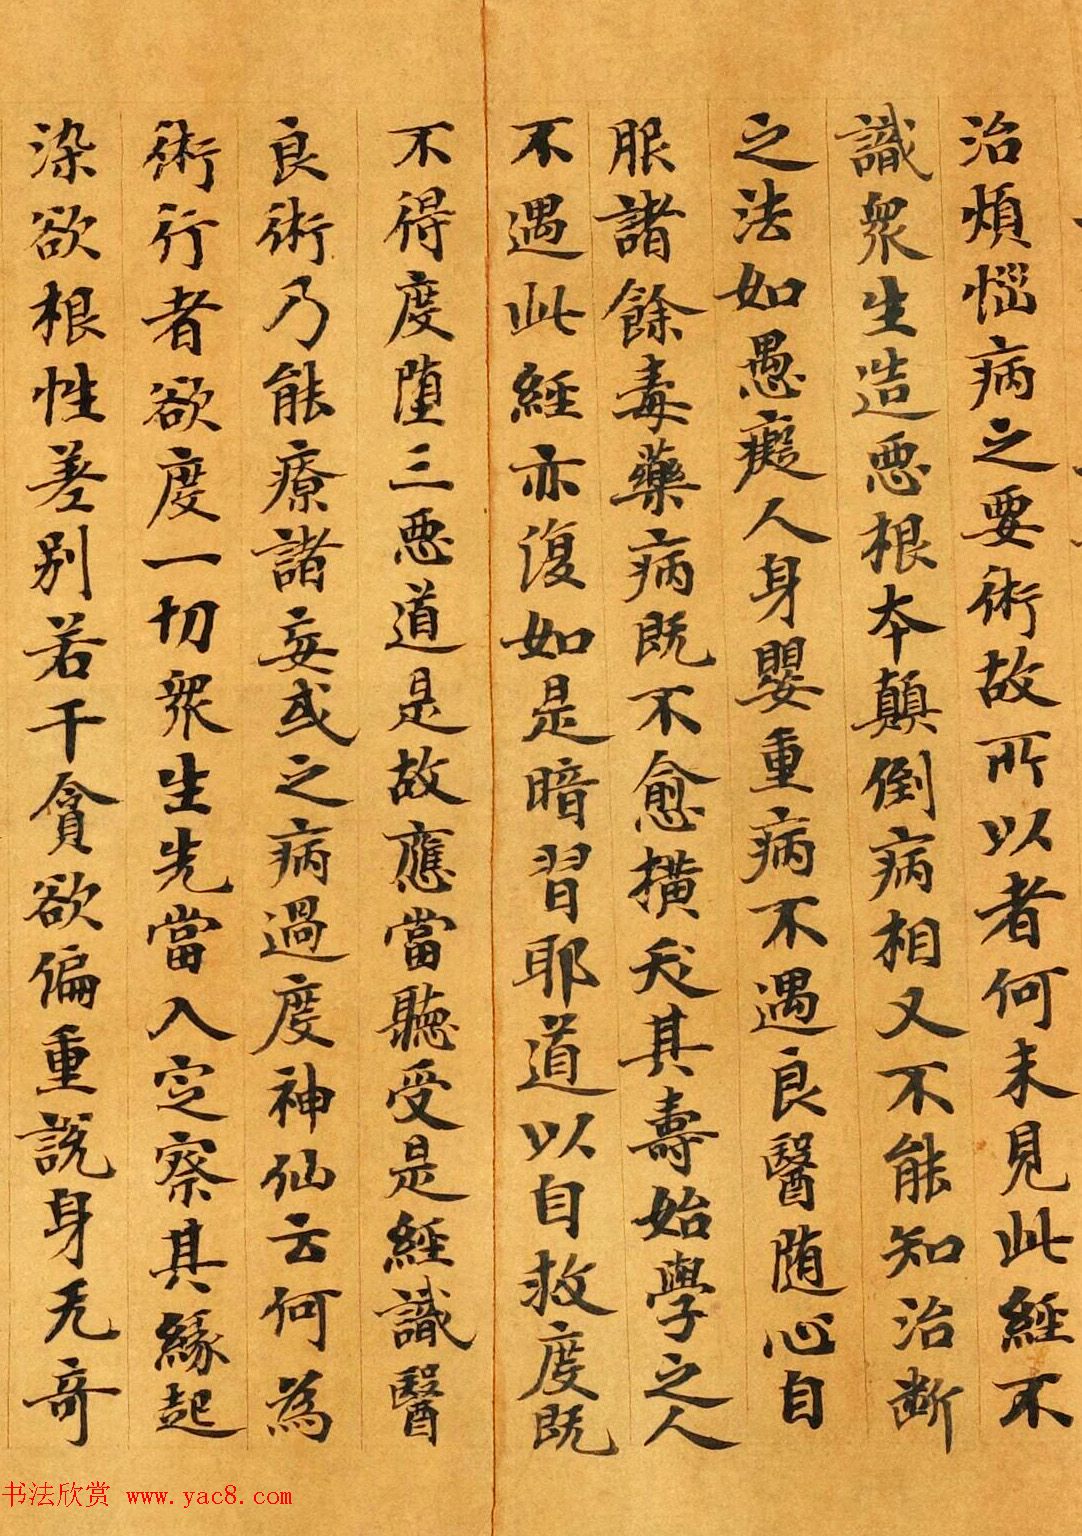 治煩惱病之要術故所以者何未見此經不
識衆生造惡根本顛倒病相又不能知治斷
之法如愚癡人身嬰重病不遇良醫随心自
服諸餘毒藥病既不愈橫夭其壽始學之人
不遇此經亦復如是暗習耶道以自救度既
不得度墮三惡道是故應當聽受是經識醫
良術乃能療諸妄或之病過度神仙云何為
術行者欲度一切衆生先當入定察其緣起
染欲根性差別若干貪欲偏重說身无奇
书法欣赏 www.yac8.com